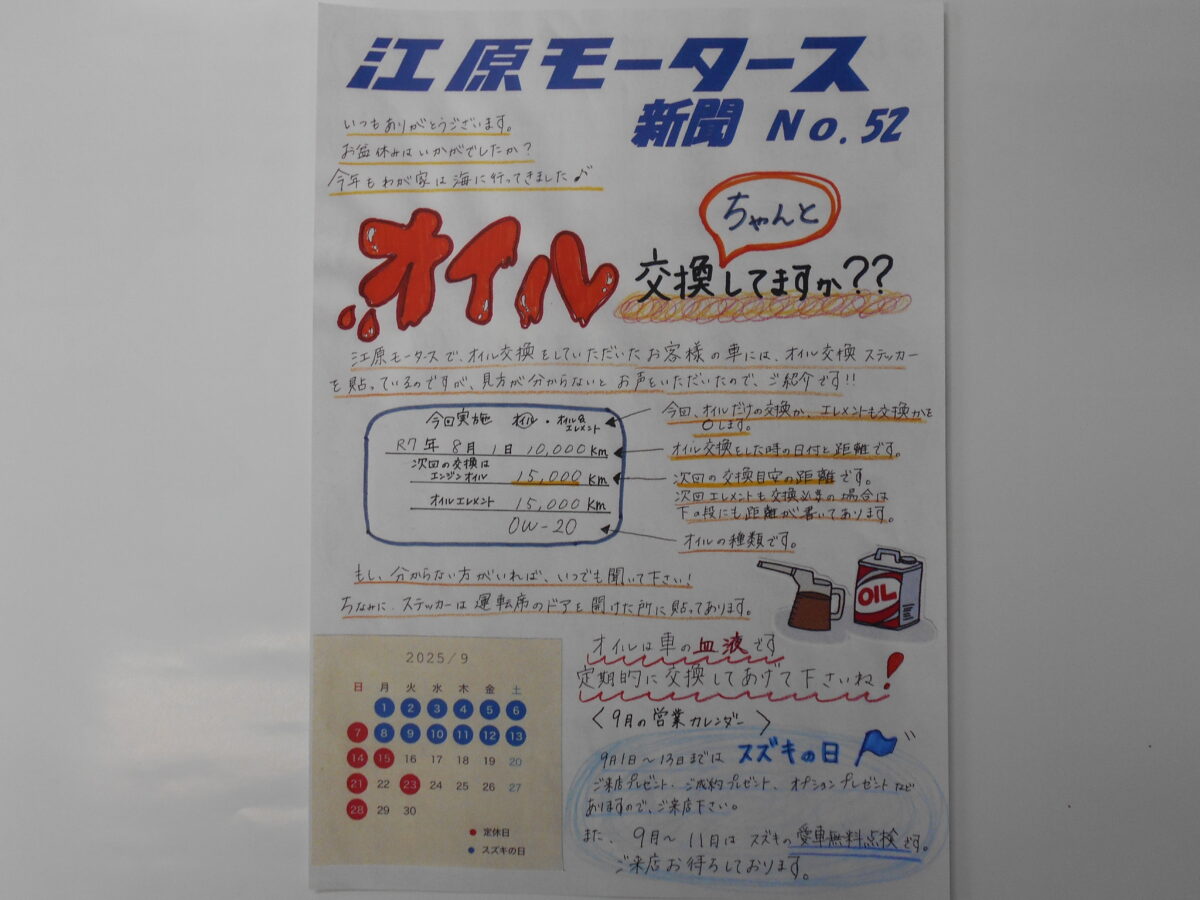 江原モータース
新聞 No.52
いつもありがとうございます。
お盆休みはいかがでしたか?
今年もわが家は海に行ってきました♪
オイル
ちゃんと
交換してますか??
江原モータースで、オイル交換をしていただいたお客様の車には、オイル交換ステッカー
を貼っているのですが、見方が分からないとお声をいただいたので、ご紹介です!!
今回実施 オイル・オイル&エレメント
R7年 8月 1日 10,000 Km
次回の交換は
エンジンオイル 15,000 Km
オイルエレメント 15,000 Km
0W-20
今回、オイルだけの交換か、エレメントも交換かを
○します。
オイル交換をした時の日付と距離です。
次回の交換目安の距離です。
次回エレメントも交換必要の場合は
下の段にも距離が書いてあります。
オイルの種類です。
もし、分からない方がいれば、いつでも聞いて下さい!
ちなみに、ステッカーは運転席のドアを開けた所に貼ってあります。
OIL
オイルは車の血液です
定期的に交換してあげて下さいね!
〈9月の営業カレンダー〉
2025/9
日 月 火 水 木 金 土
1 2 3 4 5 6
7 8 9 10 11 12 13
14 15 16 17 18 19 20
21 22 23 24 25 26 27
28 29 30
● 定休日
● スズキの日
9月1日〜13日までは スズキの日
ご来店プレゼント・ご成約プレゼント、オプションプレゼントなど
ありますので、ご来店下さい。
また、9月〜11月はスズキの愛車無料点検です。
ご来店お待ちしております。